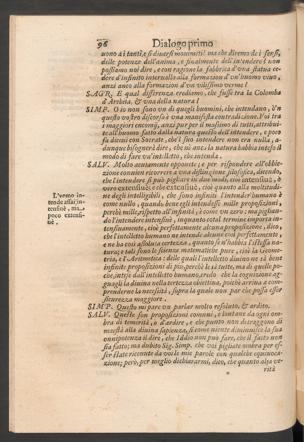 96 Dialogo primo
uono ai tanti, e sì diuersi mouimenti? ma che diremo de i sensi,
delle potenze dell'anima, e finalmente dell'intendere? non
possiamo noi dire, e con ragione la fabbrica d'vna statua ce-
dere d'infinito interuallo alla formazion d'vn huomo viuo,
anzi anco alla formazion d'vn vilissimo verme?
SAGR. E qual differenza crediamo, che fusse tra la Colomba
d'Archita, & vna della natura?
SIMP. O io non sono vn di quegli huomini, che intendano, ò'n
questo vostro discorso è vna manifesta contradizione. Voi tra
i maggiori encomij, anzi pur per il massimo di tutti, attribui-
te all'huomo fatto dalla natura questo dell'intendere, e poco
fà diceui con Socrate, che'l suo intendere non era nulla, a-
dunque bisognerà dire, che nè anco la natura habbia inteso il
modo di fare vn'intelletto, che intenda.
SALV. Molto acutamente opponete; e per rispondere all'obbie-
zione conuien ricorrere a vna distinzione filosofica, dicendo,
che l'intendere si può pigliare in due modi, cioè intensiuè, ò
vero extensiuè: e che extensiuè, cioè quanto alla moltitudi-
ne degli intelligibili, che sono infiniti l'intender humano è
come nullo, quando bene egli intendesse mille proposizioni,
perchè mille, rispetto all'infinità, è come vn zero: ma piglian-
do l'intendere intensiuè, inquanto cotal termine importa in-
tensiuamente, cioè perfettamente alcuna proposizione, dico,
che l'intelletto humano ne intende alcune così perfettamente,
e ne ha così assoluta certezza, quanto se n'habbia l'istessa na-
tura; e tali sono le scienze matematiche pure, cioè la Geome-
tria, e l'Aritmetica: delle quali l'intelletto diuino ne sà bene
infinite proposizioni di più, perchè le sà tutte, ma di quelle po-
che, intese dall'intelletto humano, credo che la cognizione ag-
guagli la diuina nella certezza obiettiua, poichè arriua a com-
prenderne la necessità, sopra la quale non par che possa esser
sicurezza maggiore.
L'vomo in-
tende assai in-
tensiuè, mà
poco extensi-
uè.
SIMP. Questo mi pare vn parlar molto resoluto, & ardito.
SALV. Queste son proposizioni comuni, e lontane da ogni om-
bra di temerità, ò d'ardire, e che punto non detraggono di
maestà alla diuina sapienza, sì come niente diminuisce la sua
onnipotenza il dire, che Iddio non può fare, che il fatto non
sia fatto; ma dubito Sig. Simp. che voi pigliate ombra per es-
ser state riceuute da voi le mie parole con qualche equiuoca-
zione; però, per meglio dichiararmi, dico, che quanto alla ve-
rità